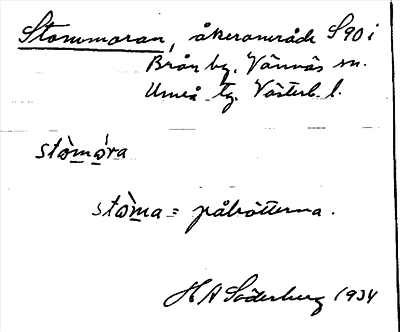 Stommaran, åkerområde S90 i
Brån by. Vännäs sn.
Umeå tg. Västerb. l.
stò̱mó̱ra
stò̱ma = påbröttarna.
H A Söderberg 1934